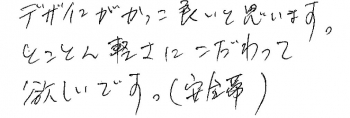 デザインがかっこ良いと思います。
とことん軽さにこだわって
欲しいです。(安全帯)